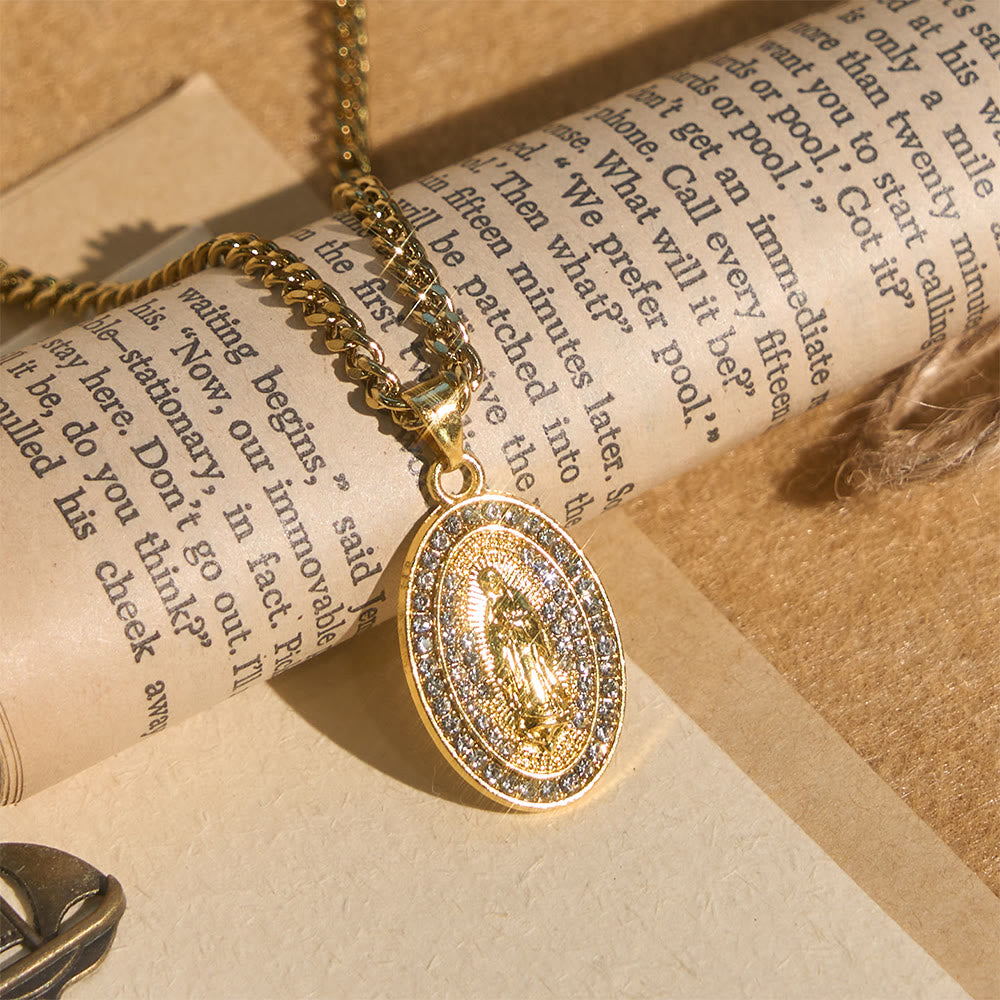 's said
d at his w
is only a mile a
more than twenty minute
want you to start calling
ards or pool.' Got it?"
rds or pool."
on't get an immediate
phone. Call every fifteen
nse. What will it be?"
ed. "'We prefer pool.'"
ol.' Then what?"
in fifteen minutes later. Sp
will be patched into the
the first tw ive the
waiting begins," said Je
his. "Now, our immovable
ble–stationary, in fact. Pic
stay here. Don't go out. I'll
it be, do you think?"
pulled his cheek away